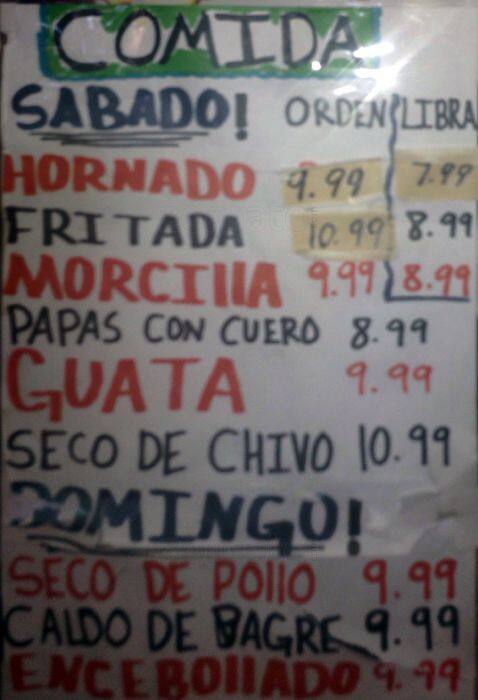 COMIDA
SABADO! ORDEN LIBRA
HORNADO 9.99 7.99
FRITADA 10.99 8.99
MORCIllA 9.99 8.99
PAPAS CON CUERO 8.99
GUATA 9.99
SECO DE CHIVO 10.99
DOMINGO!
SECO DE POllO 9.99
CALDO DE BAGRE 9.99
ENCEBOllADO 9.99